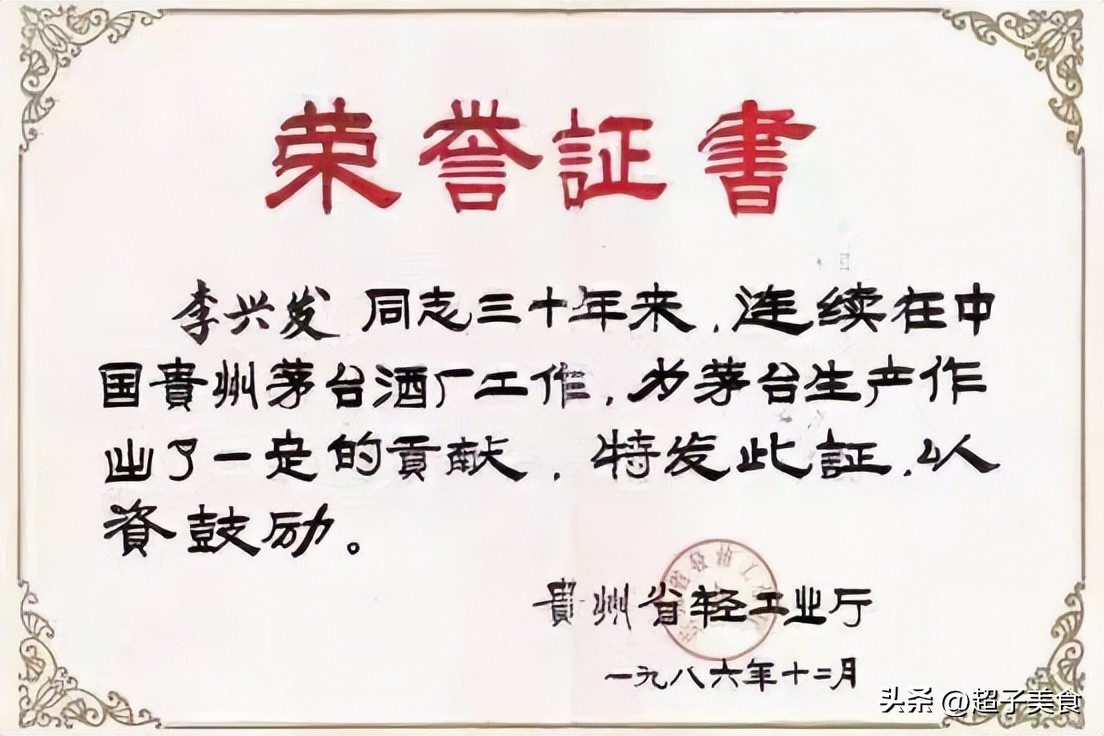 荣誉証書
李兴发同志三十年来，连续在中
国貴州茅台酒厂工作，为茅台生产作
出了一定的貢献，特发此証，以
資鼓励。
貴州省轻工业厅
一九八六年十二月
头条 @超子美食